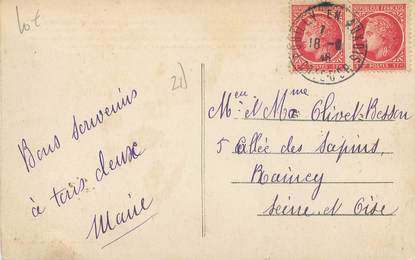 lot
20
Bons souvenirs
à tous deux
Marie
Mr et Mme Olivet-Besson
5 allée des Sapins
Raincy
Seine et Oise
18 -8
46
REPUBLIQUE FRANÇAISE
POSTES